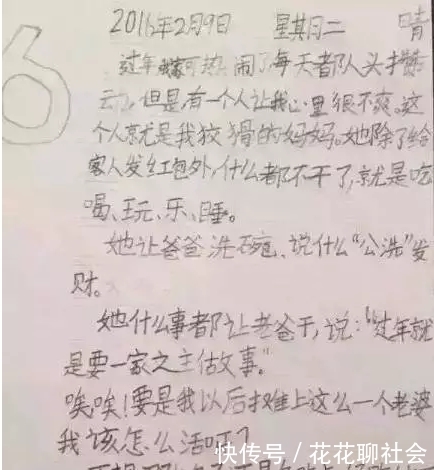 2016年2月9日 星期二 晴
过年我家可热闹了每天都人头攒
动,但是有一个人让我心里很不爽。这
个人就是我狡猾的妈妈。她除了给
客人发红包外,什么都不干了,就是吃
喝、玩、乐、睡。
她让爸爸洗碗、说什么“公洗”发
财。
她什么事都让老爸干,说:“过年就
是要一家之主做故事。”
唉,唉!要是我以后摊上这么一个老婆
我该怎么活呀?
快传号/花花聊社会